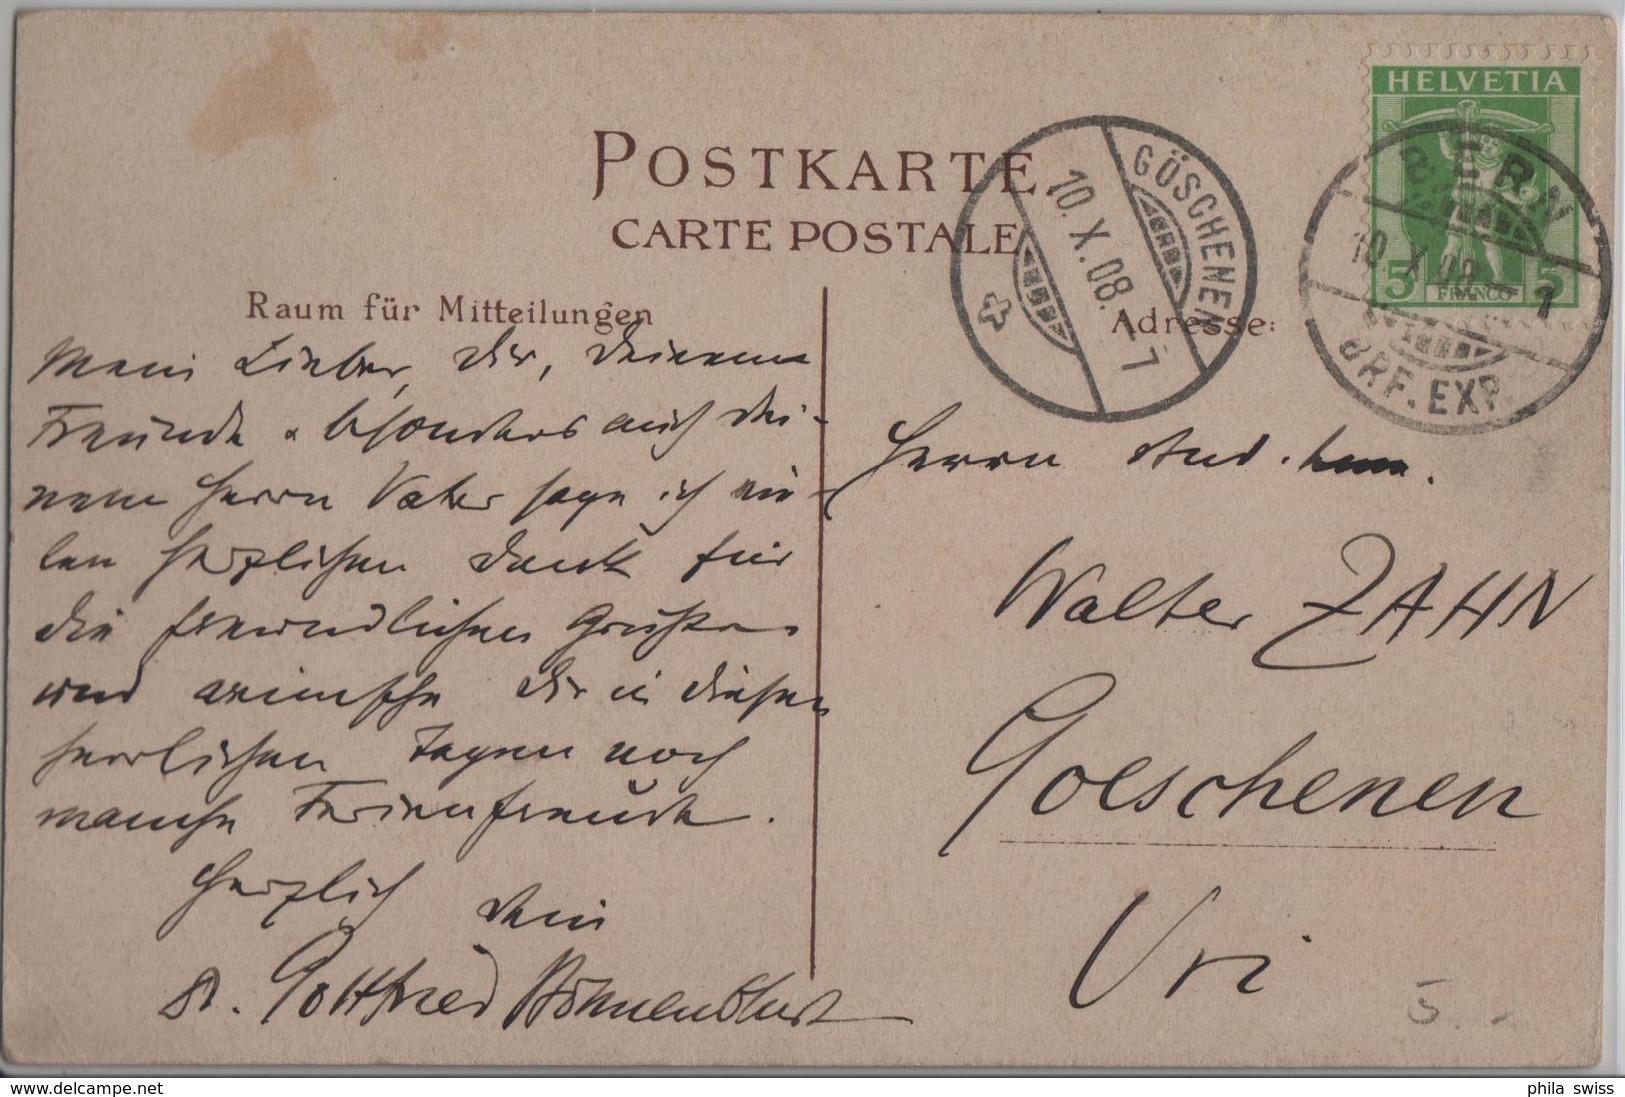 POSTKARTE
CARTE POSTALE
Raum für Mitteilungen
Adresse:
HELVETIA
5 FRANCO 5
BERN 1
10. X. 08
BRF. EXP.
GÖSCHENEN
10. X. 08. – 7
Mein Lieber, Dir, Deinem
Freunde & besonders auch Dei-
nem Herrn Vater sage ich vie-
len herzlichen Dank für
die freundlichen Grüsse
und wünsche Dir in diesen
herrlichen Tagen noch
manche Ferienfreude.
Herzlich Dein
Dr. Gottfried
Herrn stud.
Walter ZAHN
Goeschenen
Uri
5.-
phila swiss
www.delcampe.net